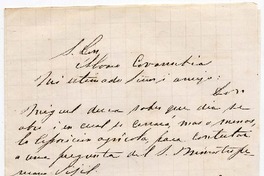 S. Don
Alvaro Covarrubias
Mi estimado Señor i amigo:
Don
Miguel desea saber que dia se
abre i en cual se cerrará mas o menos
la Esposicion agrícola, para contestar
a una pregunta del S. Ministro pe
ruano